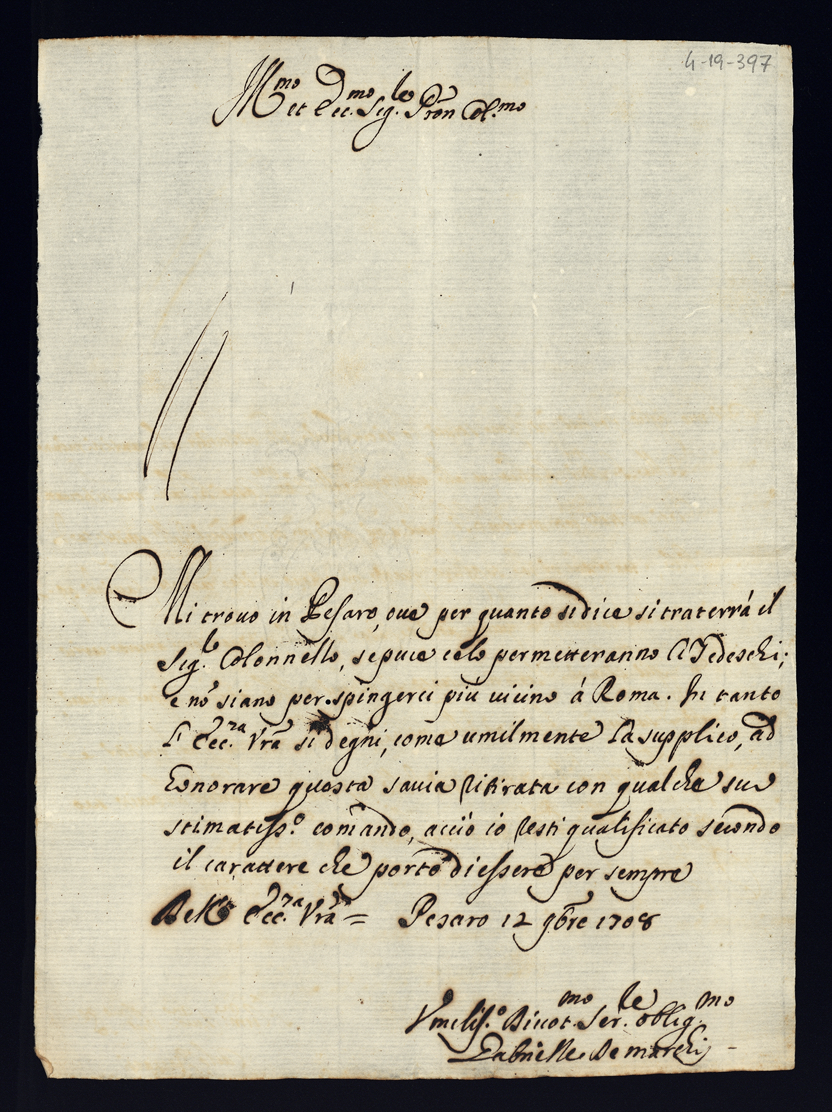 4-19-397
Ill.mo et Ecc.mo Sig.le Pron Col.mo
Mi trouo in Pesaro, oue per quanto si dice si traterrá il
Sig.le Colonnello, se puie celo permetteranno li Tedeschi;
e nõ siano per spingerci piú uicino á Roma. In tanto
L' Ecc.za Vrã si degni, come umilmente La supplico, ad
honorare questa sauia ritirata con qualche suo
stimatiss.o comãndo, acciò io resti qualificato secondo
il carattere che porto di essere per sempre
Dell' Ecc.za Vrã = Pesaro 12 9bre 1708
Vmiliss.o Diuot.mo Ser.le obblig.mo
Gabrielle De marchi